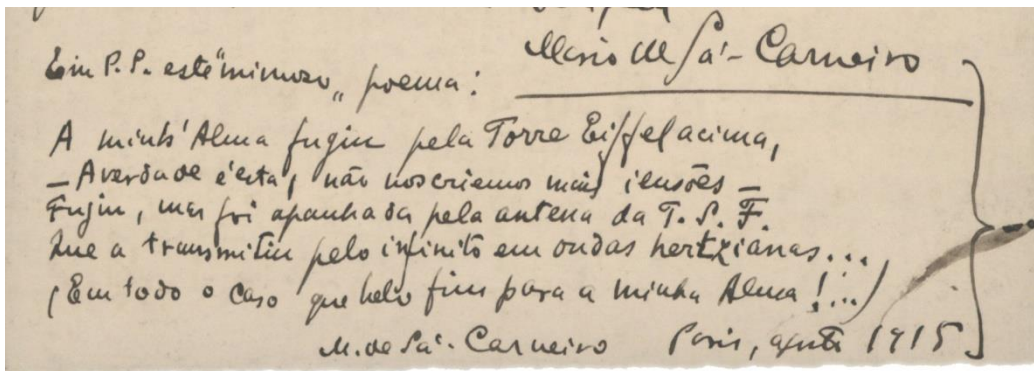 Mario de Sá-Carneiro
Em P.S. este "mimoso" poema:
A minh'Alma fugiu pela Torre Eiffel acima,
— A verdade é esta, não nos criemos mais ilusões —
Fugiu, mas foi apanhada pela antena da T. S. F.
Que a transmitiu pelo infinito em ondas hertzianas...
(Em todo o caso que belo fim para a minha Alma!...)
M. de Sá-Carneiro Paris, agosto 1915